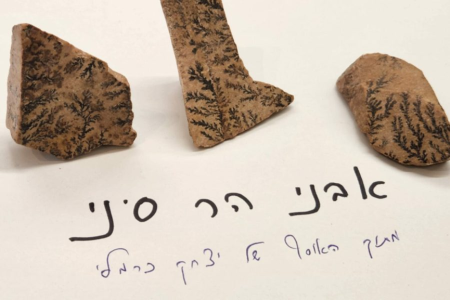 אבני הר סיני
מתוך האוסף של יצחק כרמלי